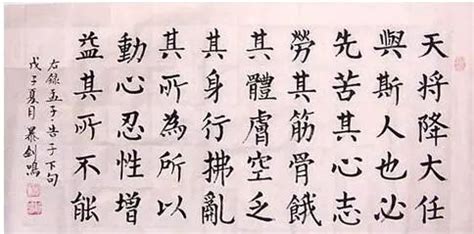 天将降大任
與斯人也必
先苦其心志
勞其筋骨餓
其體膚空乏
其身行拂亂
其所為所以
動心忍性增
益其所不能
右錄孟子告子下句
戊子夏月